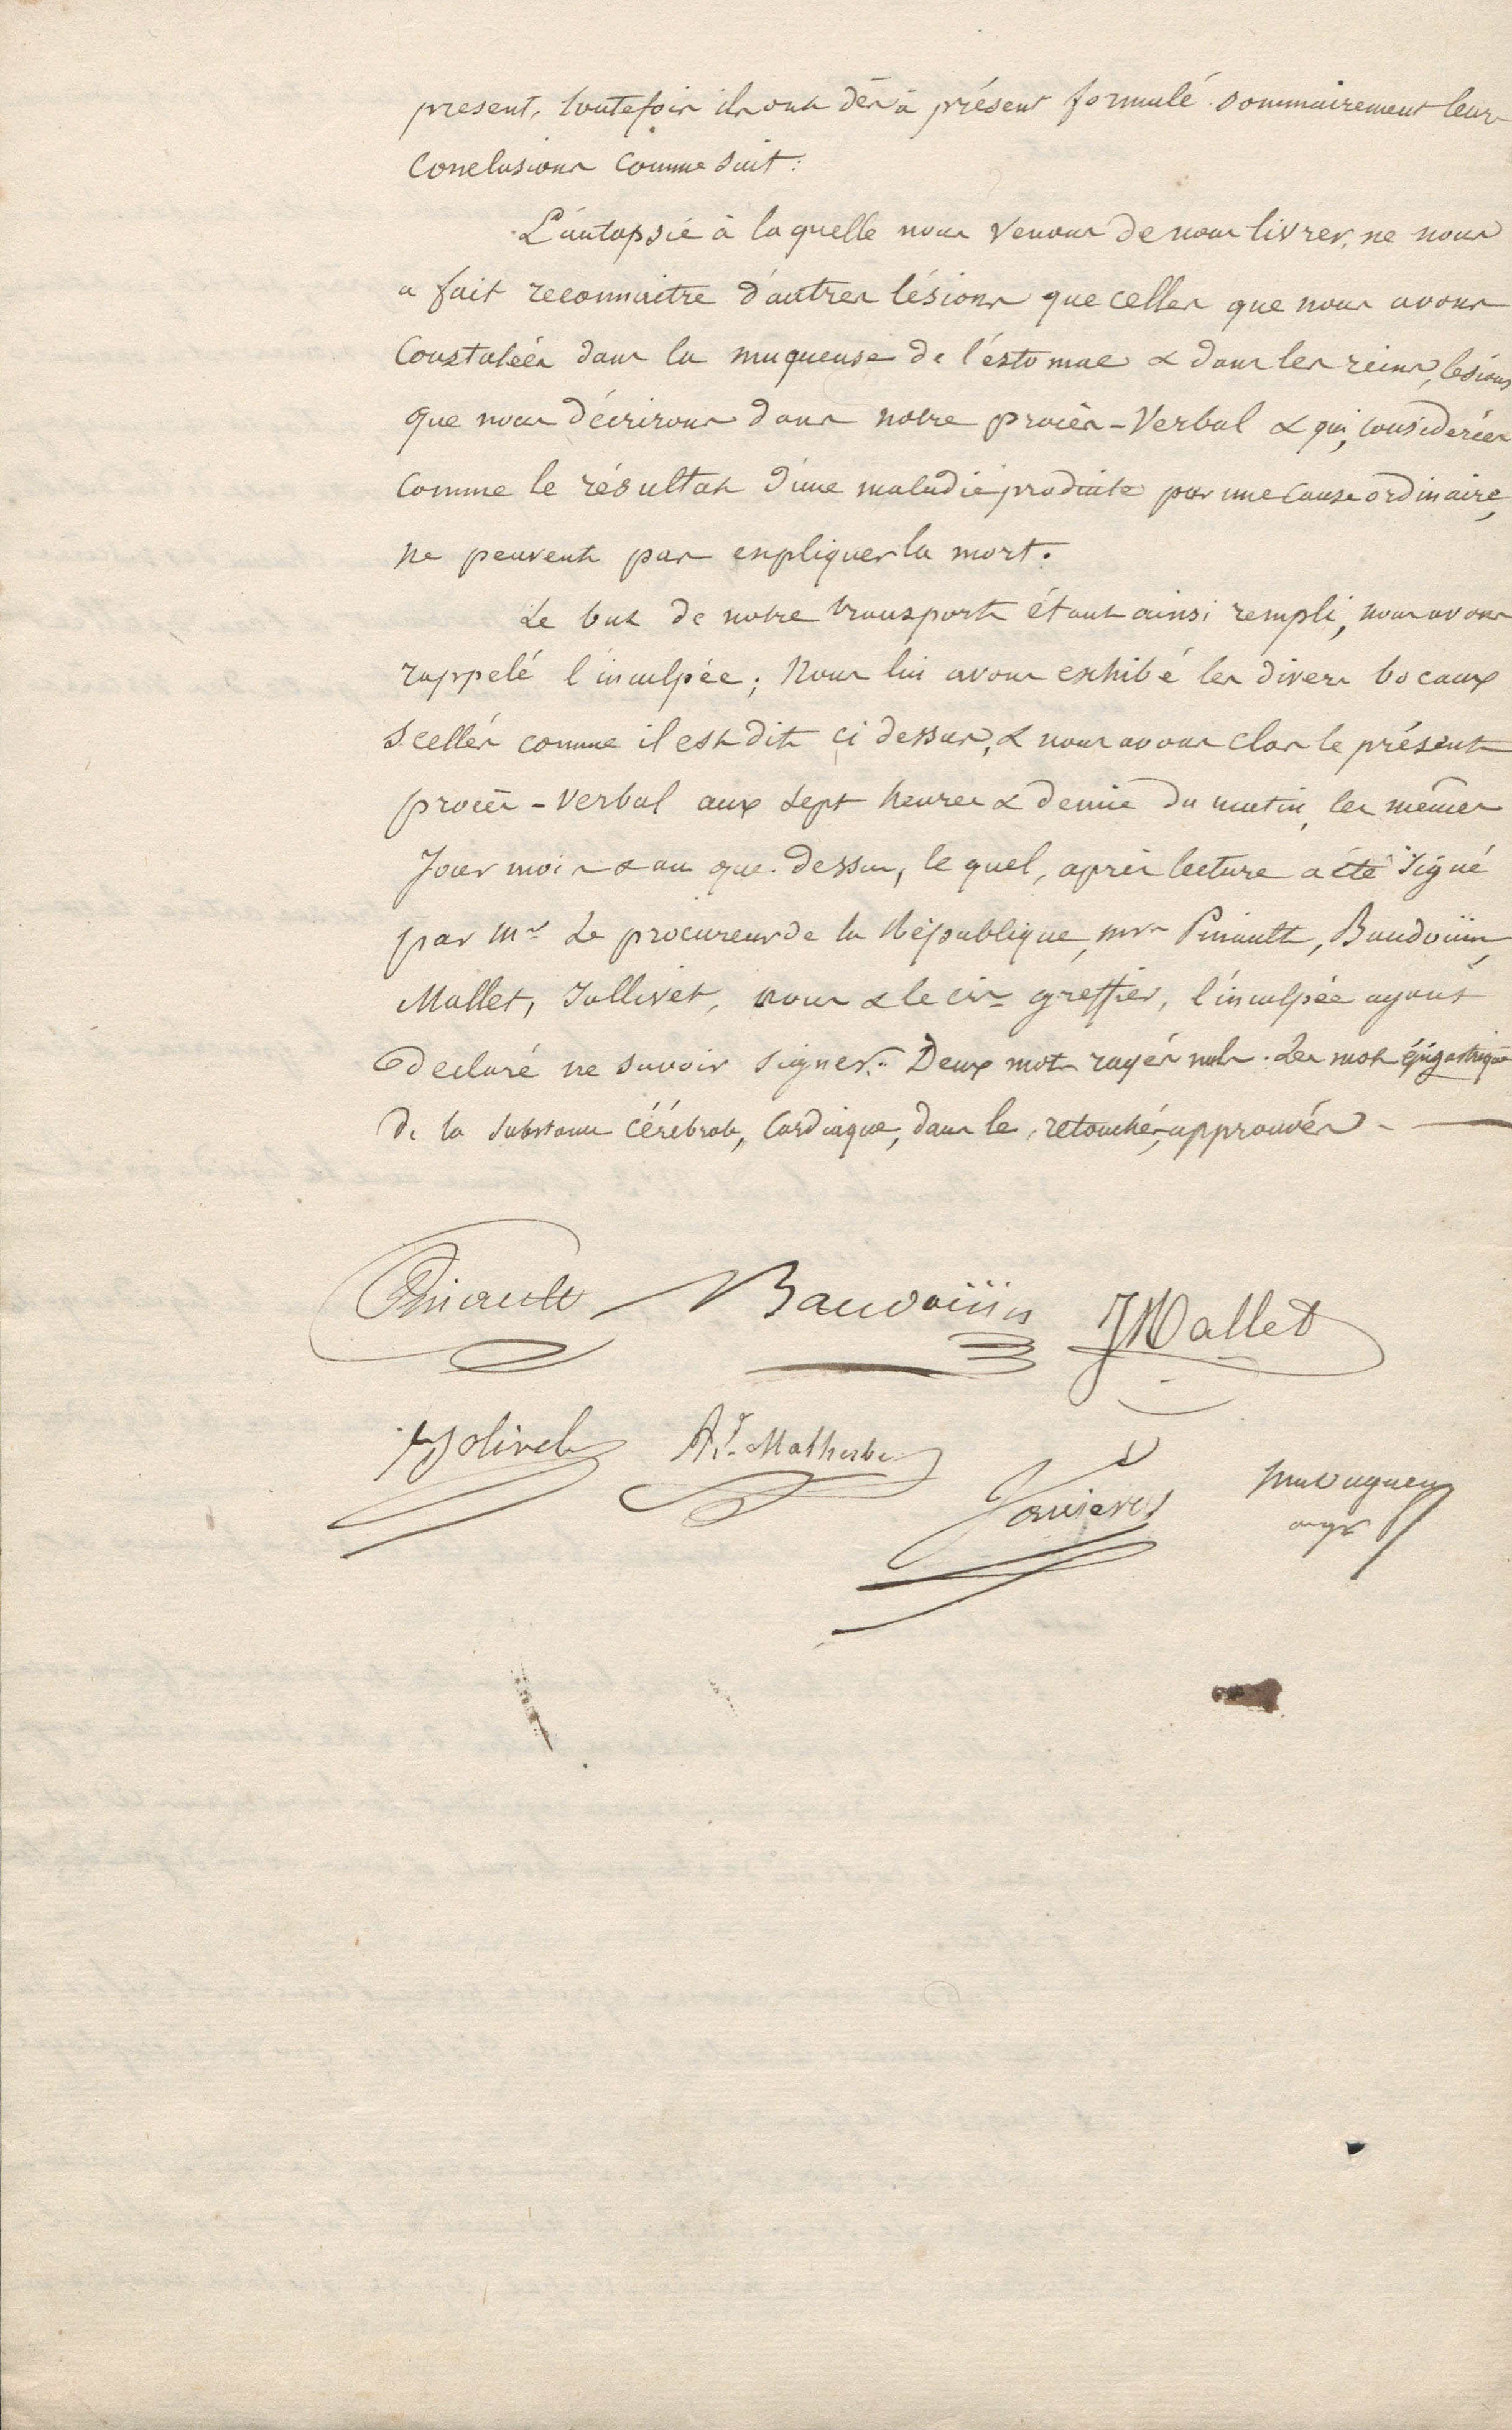 present, toutefois ils ont dès à présent formulé sommairement leurs
Conclusions Comme Suit :
L'autopsie à laquelle nous venons de nous livrer, ne nous
a fait reconnaitre d'autres lésions que celles que nous avons
Constatées dans la muqueuse de l'éstomac & dans les reins, lésions
que nous décrirons dans notre procès-Verbal & qui, considérées
Comme le résultat d'une maladie produite par une Cause ordinaire,
ne peuvent pas expliquer la mort.
Le but de notre transport étant ainsi rempli, nous avons
rappelé l'inculpée ; Nous lui avons exhibé les divers bocaux
Scellés comme il est dit ci dessus, & nous avons clos le présent
procès-Verbal aux Sept heures & demie du matin, les mêmes
Jour mois & an que dessus, le quel, après lecture a été Signé
par Mr Le procureur de la République, mrs Pinault, Baudouin,
Mallet, Jollivet, nous & le cis greffier, l'inculpée ayant
déclaré ne Savoir Signer. Deux mots rayés nuls. Les mots épigastrique
De la Substance Cérébrale, Cardiaque, dans le, retouchés, approuvés
Pinault Baudouin JMallet
Jolivel Ad. Malherbe